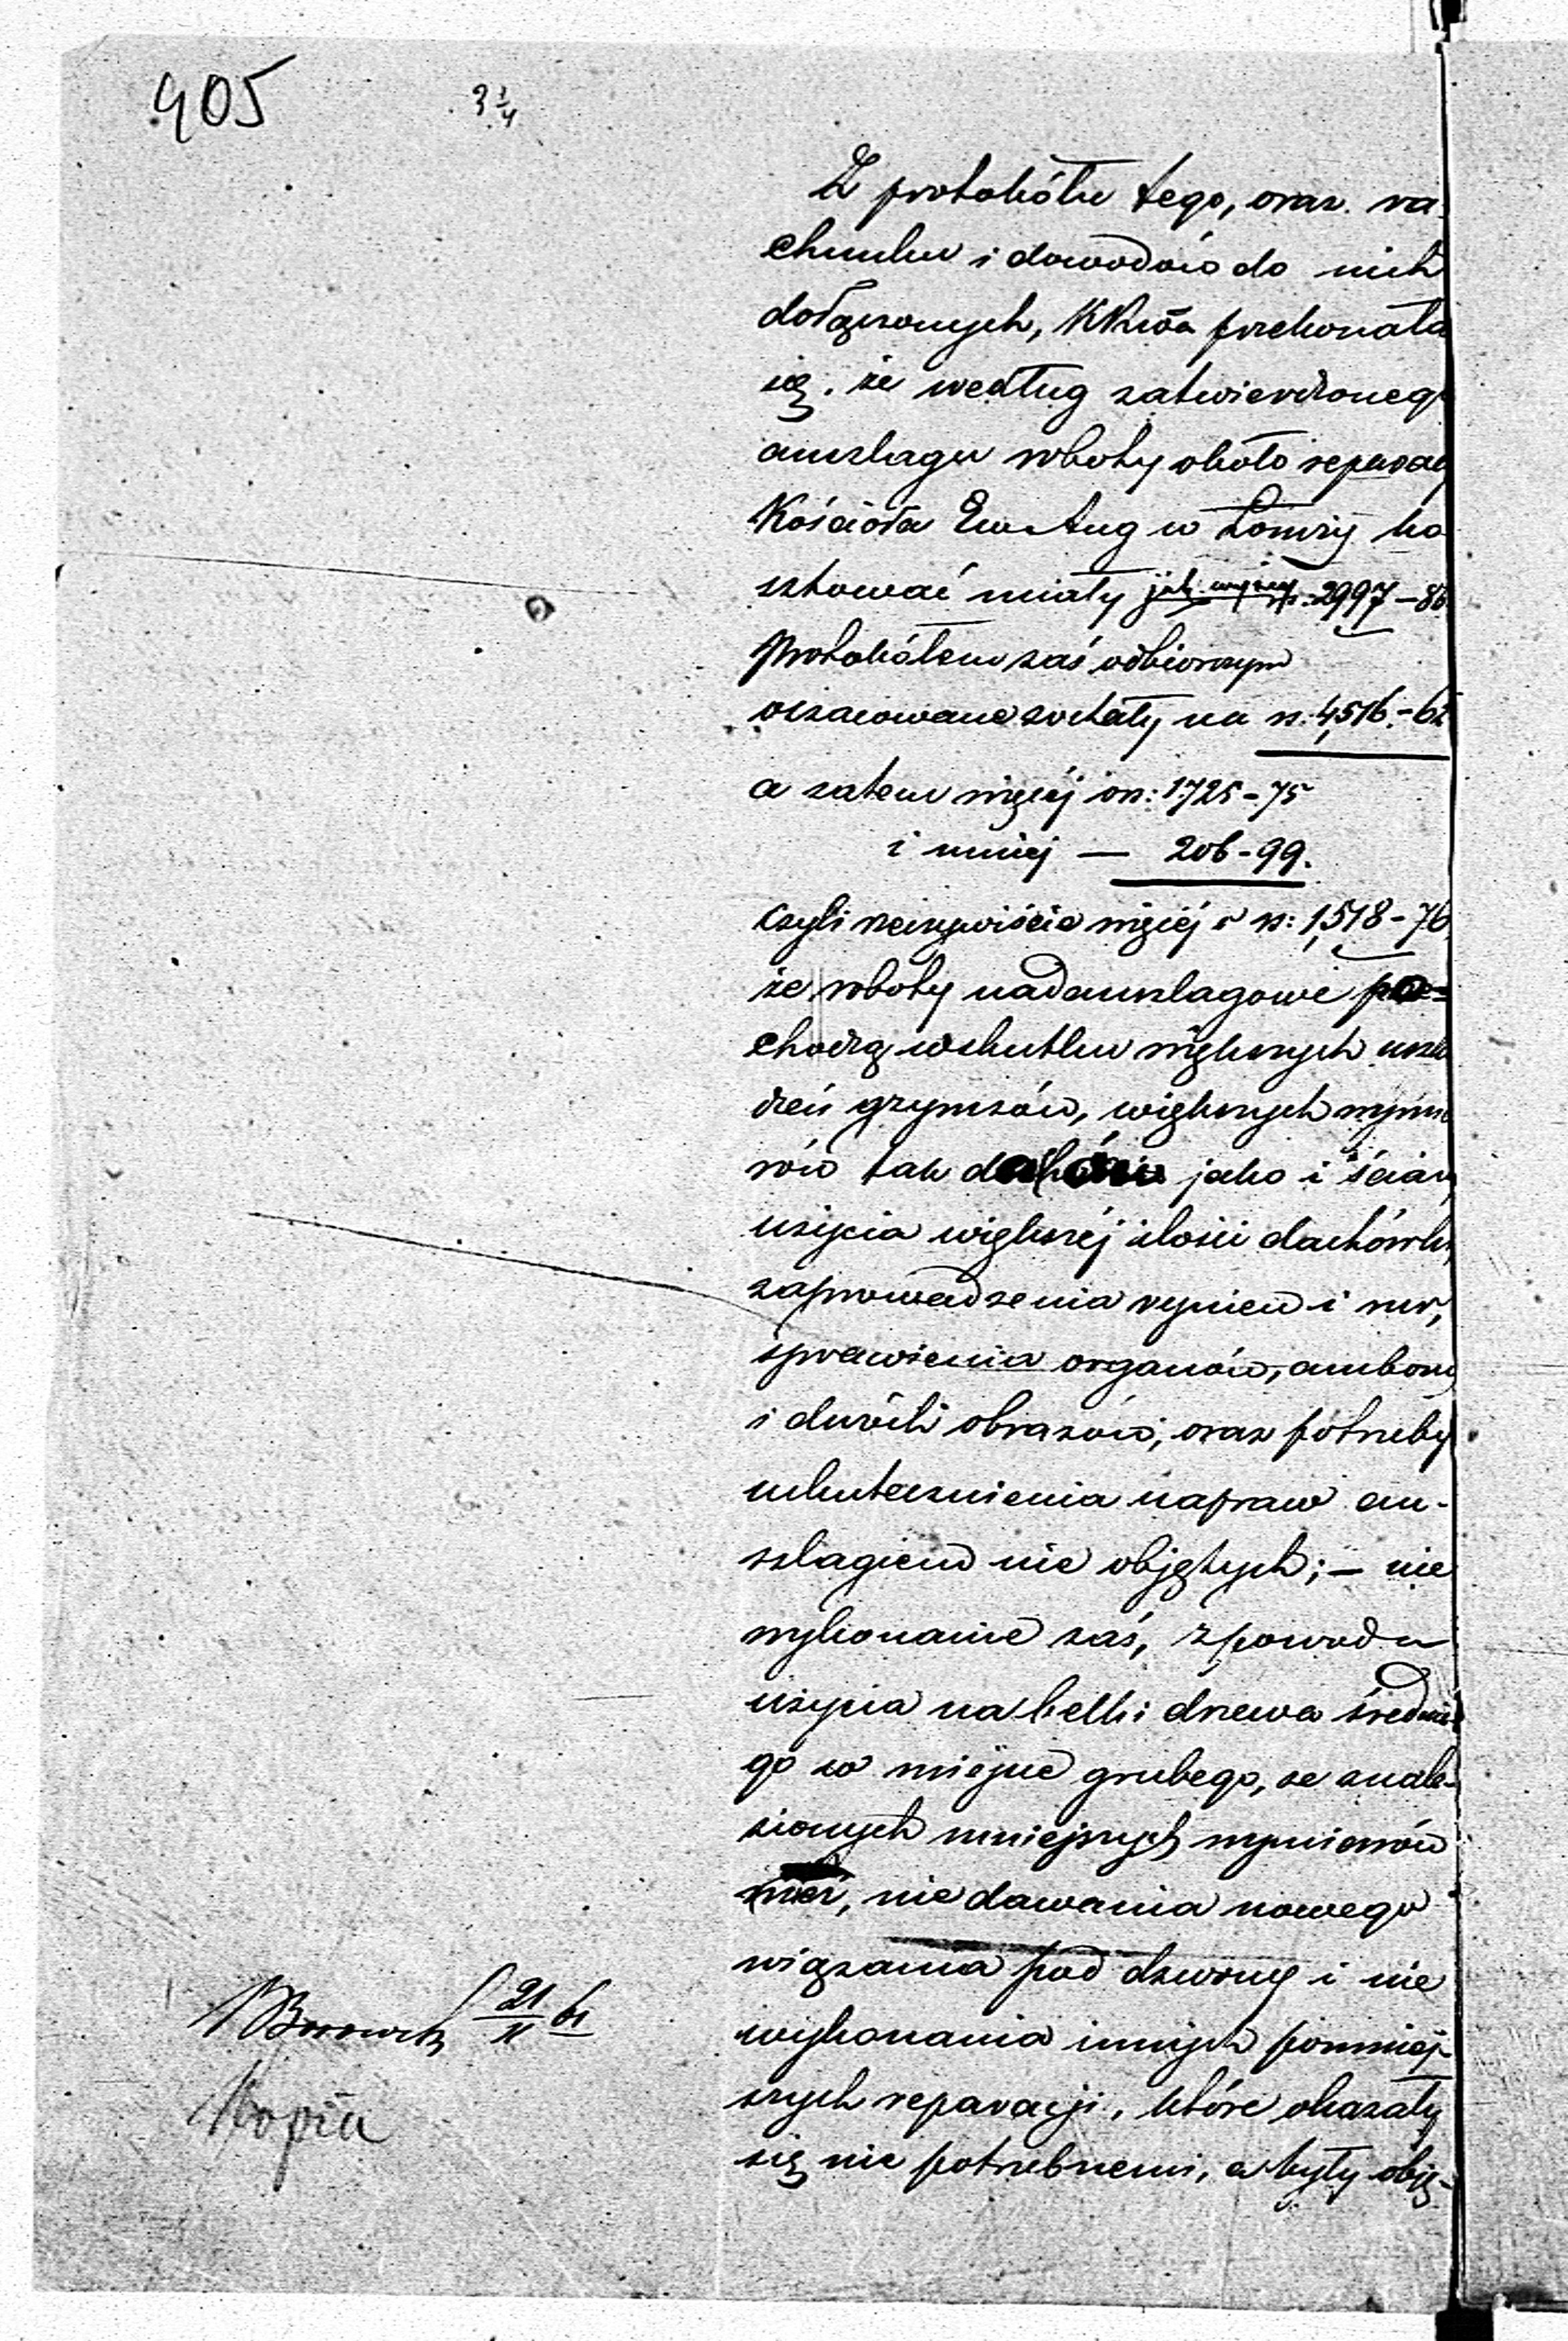 405
3 1/4
Z protokółu tego, oraz ra
chunku i dowodów do nich
dołączonych, KRwa przekonała
się, że według zatwierdzonego
anszlagu roboty około reparacy
Kościoła Ew Aug w Łomży ko
sztować miały jak wyżej rs. 2997-86
Protokółem zaś odbiorczym
oszacowane zostały na rs. 4,516.-62
a zatem więcéj o rs: 1725-75
i mniej — 206-99.
czyli rzeczywiście więcéj o rs: 1,518-76
że roboty nadanszlagowe po=
chodzą wskutku większych uszko
dzeń gzymsów, większych wymia
rów tak dachów jako i ścian,
użycia większéj ilości dachówki,
zaprowadzenia rynien i rur,
sprawienia organów, ambony
i dwóch obrazów, oraz potrzeby
uskutecznienia napraw an-
szlagiem nie objętych; — nie
wykonanie zaś, z powodu
użycia na belki drzewa średnie
go w miejsce grubego, ze znale-
zionych mniejszych wymiarów
nie dawania nowego
wiązania pod dzwony i nie
wykonania innych pomniej-
szych reparacji, które okazały
się nie potrzebnemi, a były obję-
Borowski 21/11 61
Kopia